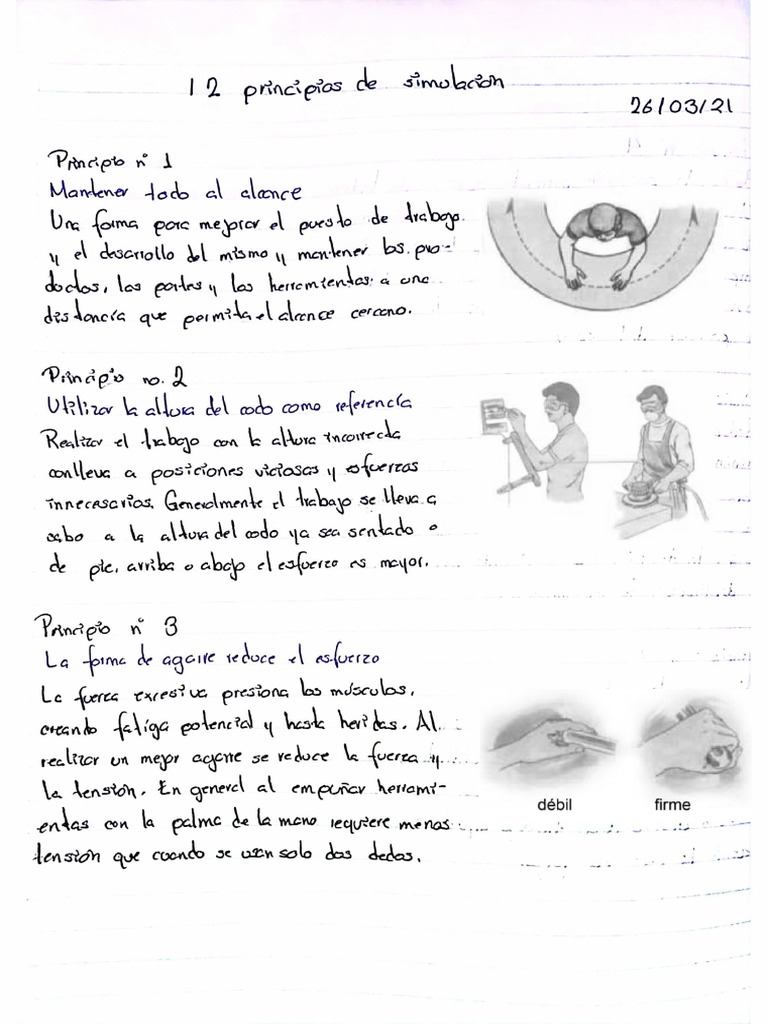 12 principios de simulación
26/03/21
Principio n° 1
Mantener todo al alcance
Una forma para mejorar el puesto de trabajo
y el desarrollo del mismo y mantener los pro-
doctos, las partes y las herramientas a una
distancia que permita el alcance cercano.
Principio no. 2
Utilizar la altura del codo como referencia
Realizar el trabajo con la altura incorrecta
conlleva a posiciones viciosas y esfuerzos
innecesarios. Generalmente el trabajo se lleva a
cabo a la altura del codo ya sea sentado o
de pie, arriba o abajo el esfuerzo es mayor.
Principio n° 3
La forma de agarre reduce el esfuerzo
La fuerza excesiva presiona los músculos,
creando fatiga potencial y hasta heridas. Al
realizar un mejor agarre se reduce la fuerza y
la tensión. En general al empuñar herrami-
entas con la palma de la mano requiere menos
tensión que cuando se usan solo dos dedos.
débil firme